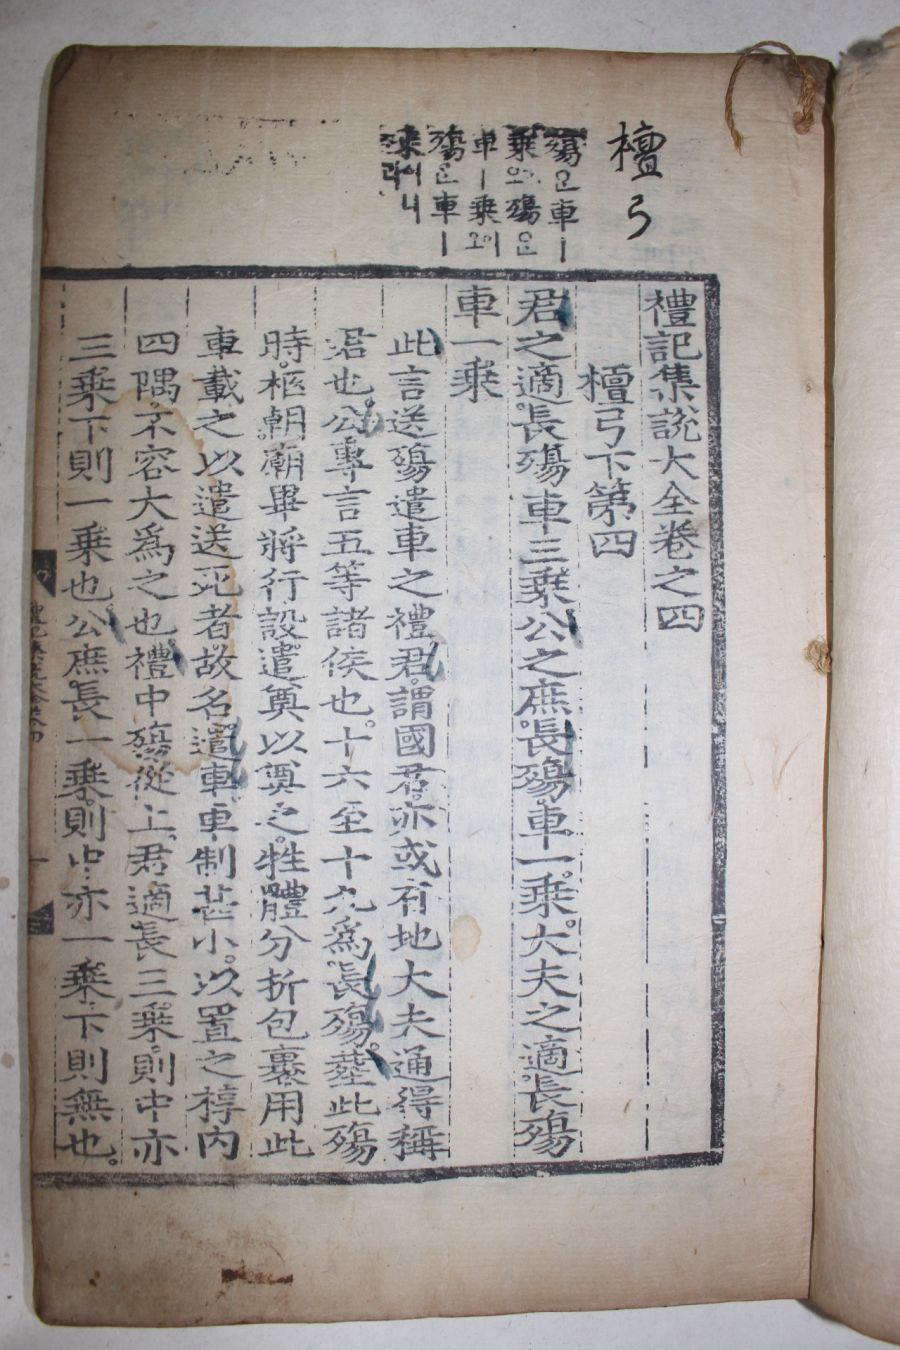 檀弓
殤은車ㅣ
乘의殤은
車ㅣ乘오이
殤은車ㅣ
乘이니
라
禮記集說大全卷之四
檀弓下第四
君之適長殤車三乘公之庶長殤車一乘大夫之適長殤
車一乘
此言送殤遣車之禮君謂國君亦或有地大夫通得稱
君也公專言五等諸侯也十六至十九為長殤葬此殤
時柩朝廟畢將行設遣奠以奠之牲體分折包裹用此
車載之以遣送死者故名遣車車制甚小以置之椁內
四隅不容大為之也禮中殤從上君適長三乘則中亦
三乘下則一乘也公庶長一乘則中亦一乘下則無也